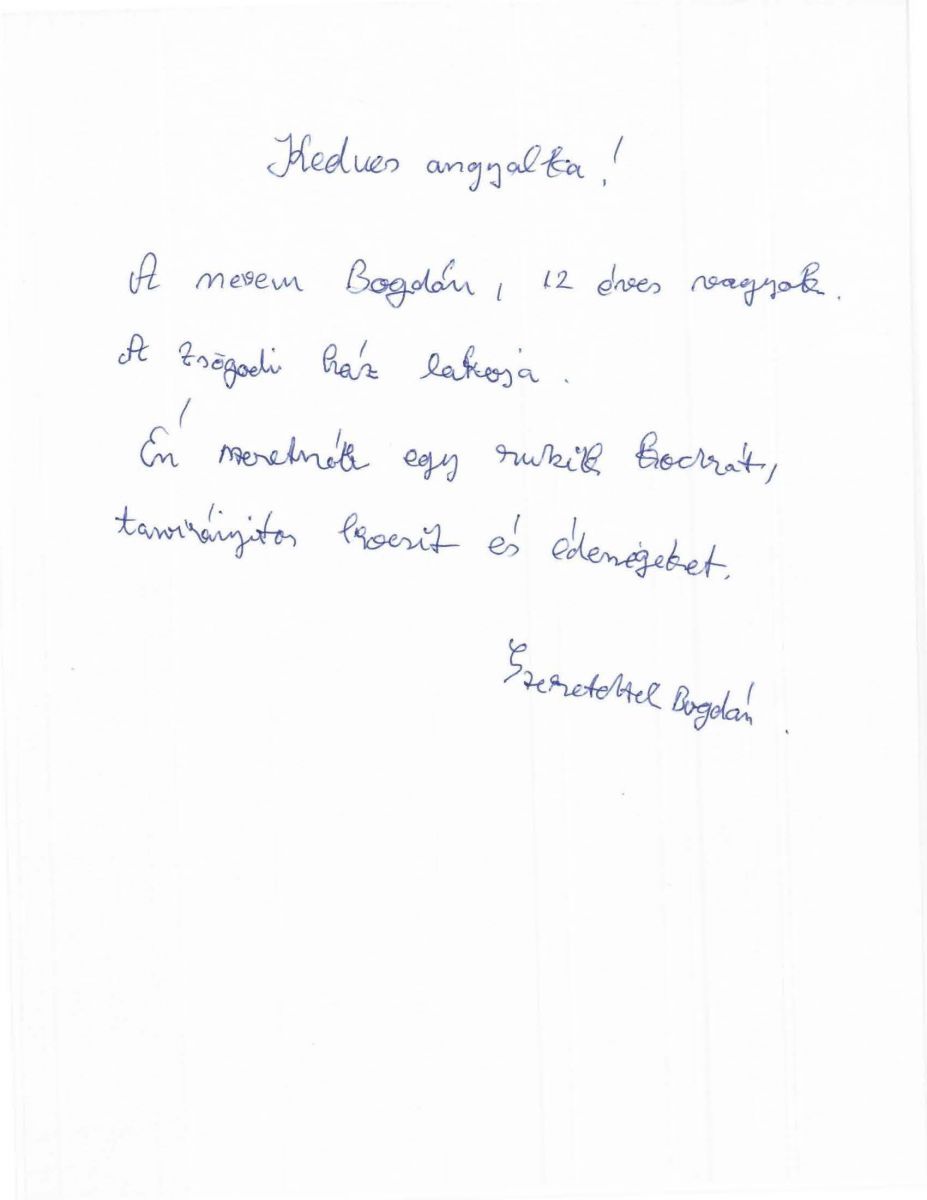 Kedves angyalka!
A nevem Bogdán, 12 éves vagyok.
A Zsögödi ház lakosa.
Én szeretnék egy rubik kockát,
távirányitos kocsit és édeségeket.
Szeretettel Bogdán.